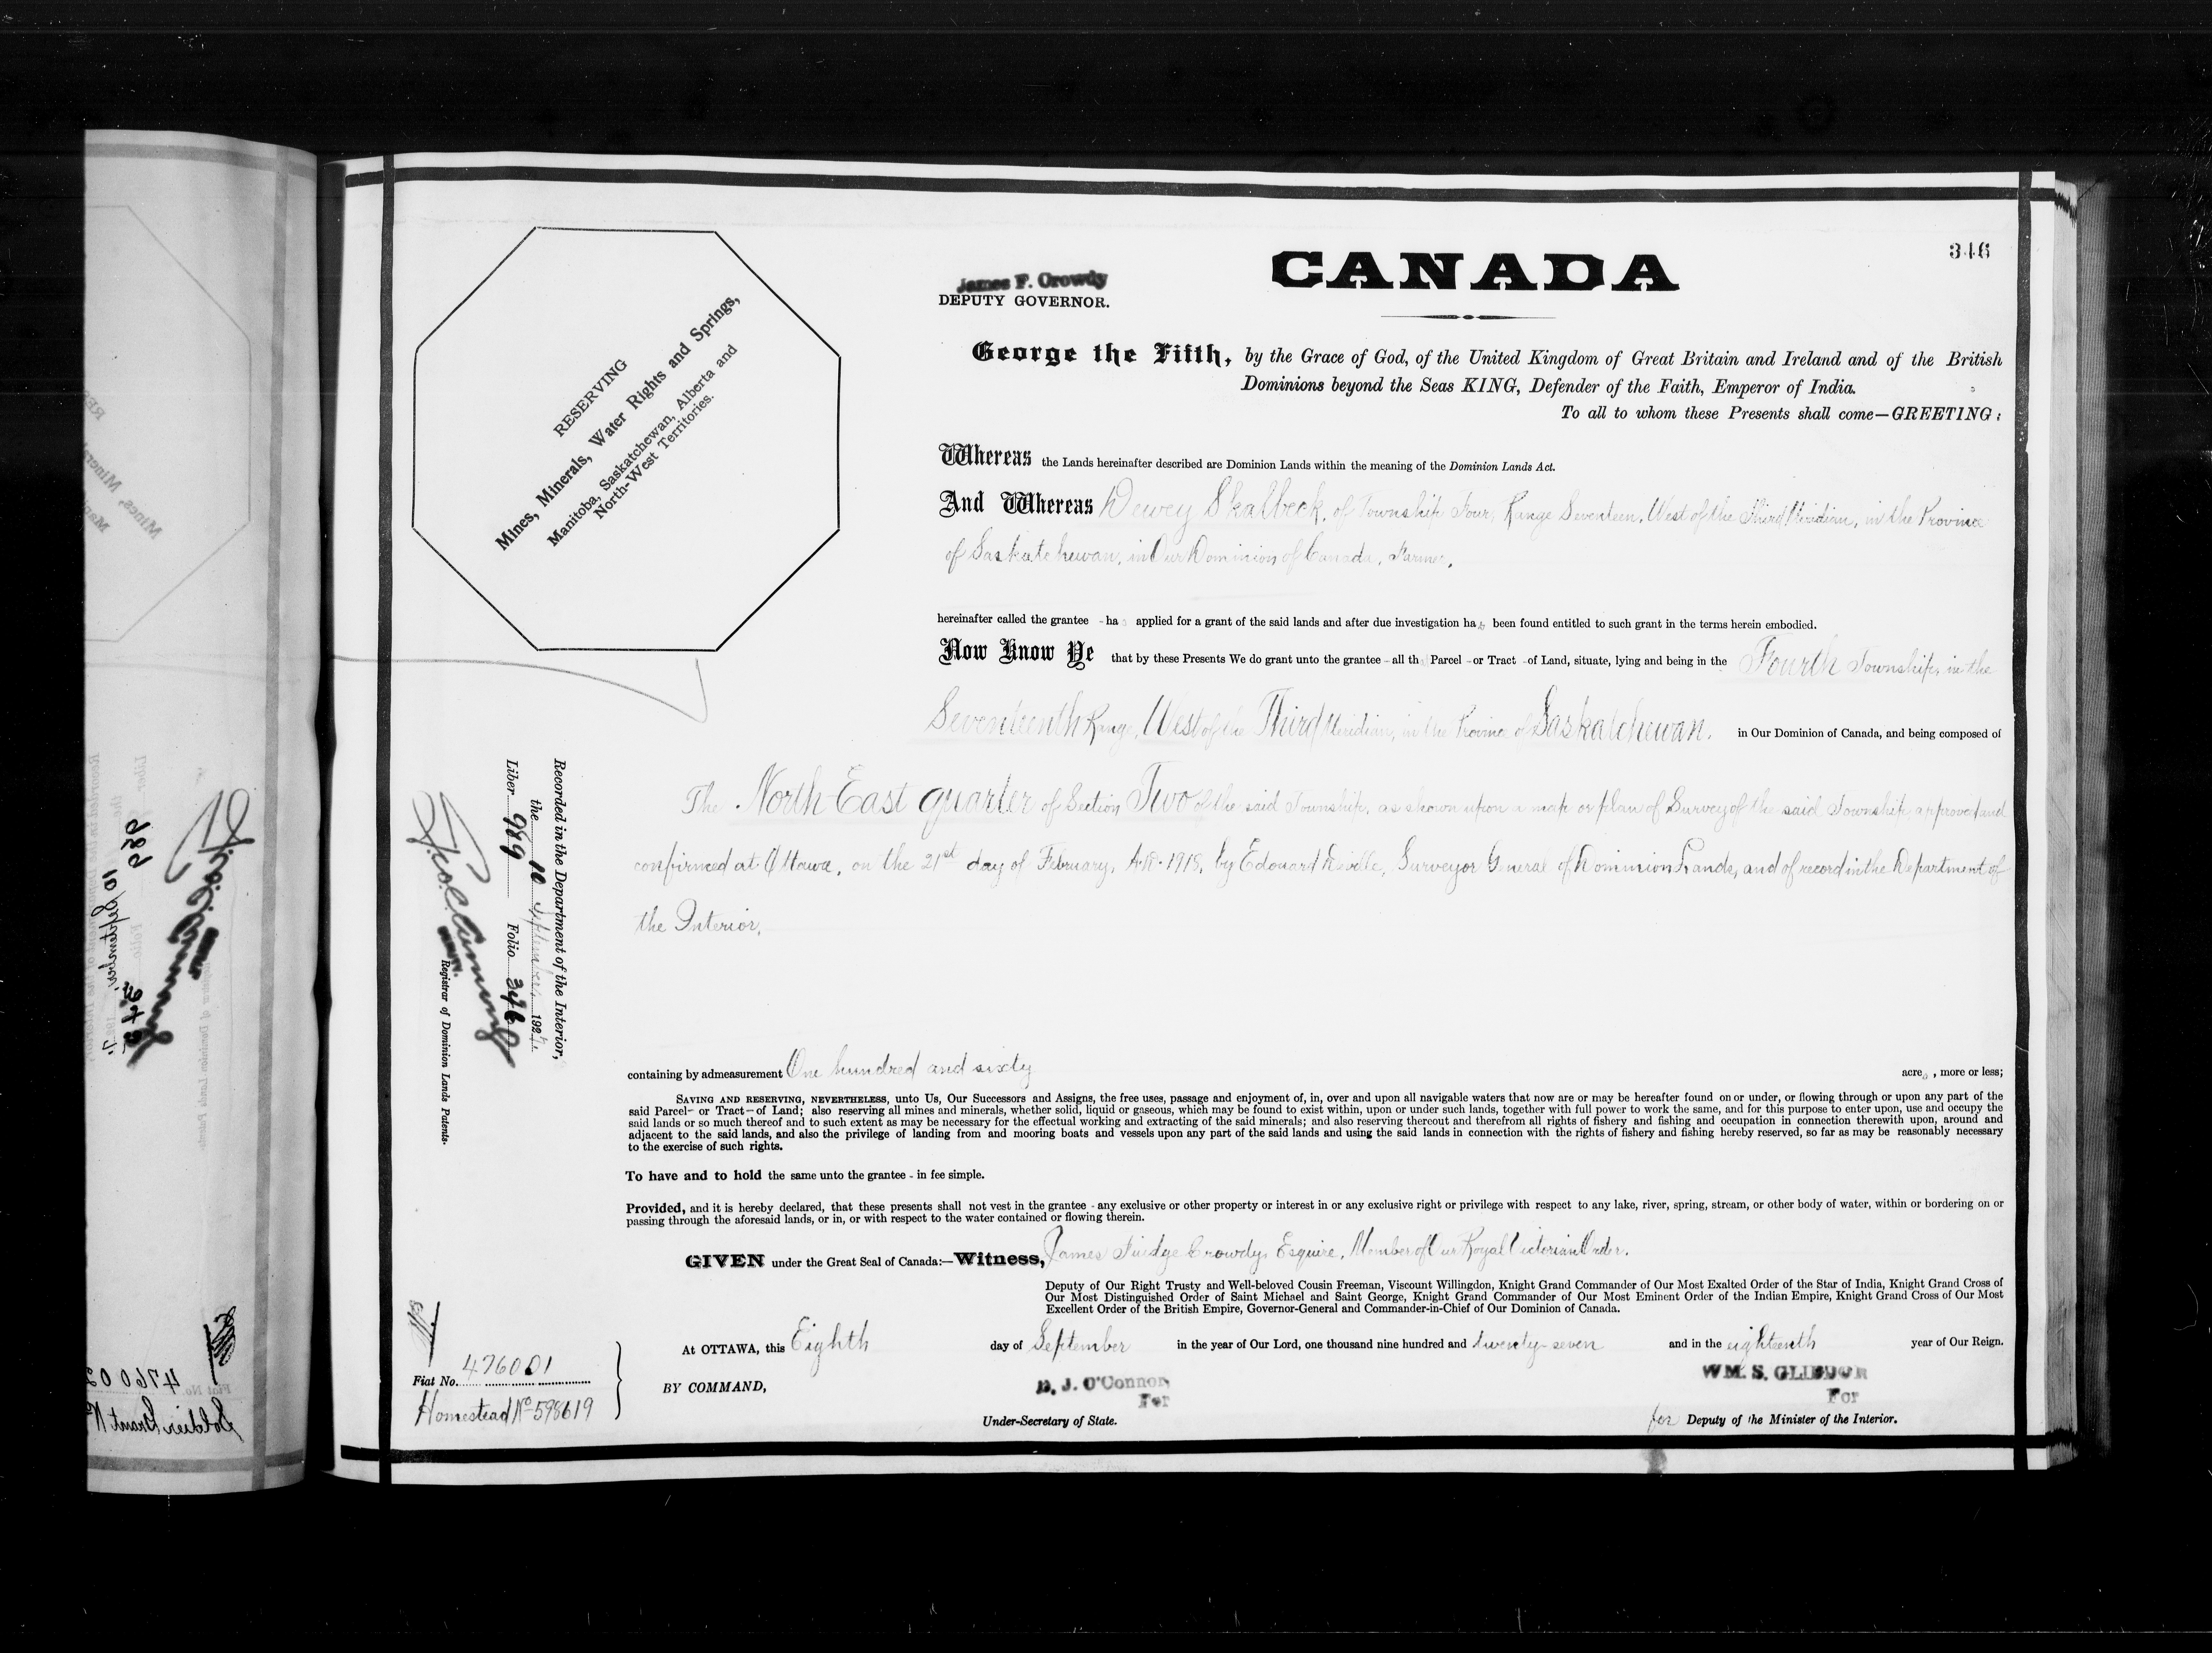 346
CANADA
James F. Crowdy
DEPUTY GOVERNOR.
RESERVING
Mines, Minerals, Water Rights and Springs,
Manitoba, Saskatchewan, Alberta and
North-West Territories.
George the Fifth, by the Grace of God, of the United Kingdom of Great Britain and Ireland and of the British
Dominions beyond the Seas KING, Defender of the Faith, Emperor of India.
To all to whom these Presents shall come—GREETING:
Whereas the Lands hereinafter described are Dominion Lands within the meaning of the Dominion Lands Act.
And Whereas Dewey Skalbeck, of Township Four, Range Seventeen, West of the Third Meridian, in the Province
of Saskatchewan, in Our Dominion of Canada, Farmer,
hereinafter called the grantee - has applied for a grant of the said lands and after due investigation has been found entitled to such grant in the terms herein embodied.
Now Know Ye that by these Presents We do grant unto the grantee - all th Parcel - or Tract - of Land, situate, lying and being in the Fourth Township, in the
Seventeenth Range, West of the Third Meridian, in the Province of Saskatchewan, in Our Dominion of Canada, and being composed of
The North East quarter of Section Two of the said Township, as shown upon a map or plan of Survey of the said Township, approved and
confirmed at Ottawa, on the 21st day of February, A.D. 1918, by Edouard Deville, Surveyor General of Dominion Lands, and of record in the Department of
the Interior,
Recorded in the Department of the Interior,
the 10 September 1927.
Liber 989 Folio 346
Registrar of Dominion Lands Patents.
containing by admeasurement One hundred and sixty acres, more or less;
SAVING AND RESERVING, NEVERTHELESS, unto Us, Our Successors and Assigns, the free uses, passage and enjoyment of, in, over and upon all navigable waters that now are or may be hereafter found on or under, or flowing through or upon any part of the
said Parcel- or Tract- of Land; also reserving all mines and minerals, whether solid, liquid or gaseous, which may be found to exist within, upon or under such lands, together with full power to work the same, and for this purpose to enter upon, use and occupy the
said lands or so much thereof and to such extent as may be necessary for the effectual working and extracting of the said minerals; and also reserving thereout and therefrom all rights of fishery and fishing and occupation in connection therewith upon, around and
adjacent to the said lands, and also the privilege of landing from and mooring boats and vessels upon any part of the said lands and using the said lands in connection with the rights of fishery and fishing hereby reserved, so far as may be reasonably necessary
to the exercise of such rights.
To have and to hold the same unto the grantee - in fee simple.
Provided, and it is hereby declared, that these presents shall not vest in the grantee - any exclusive or other property or interest in or any exclusive right or privilege with respect to any lake, river, spring, stream, or other body of water, within or bordering on or
passing through the aforesaid lands, or in, or with respect to the water contained or flowing therein.
GIVEN under the Great Seal of Canada:—Witness, James Fuidge Crowdy, Esquire, Member of Our Royal Victorian Order.
Deputy of Our Right Trusty and Well-beloved Cousin Freeman, Viscount Willingdon, Knight Grand Commander of Our Most Exalted Order of the Star of India, Knight Grand Cross of
Our Most Distinguished Order of Saint Michael and Saint George, Knight Grand Commander of Our Most Eminent Order of the Indian Empire, Knight Grand Cross of Our Most
Excellent Order of the British Empire, Governor-General and Commander-in-Chief of Our Dominion of Canada.
At OTTAWA, this Eighth day of September in the year of Our Lord, one thousand nine hundred and twenty-seven and in the eighteenth year of Our Reign.
Fiat No. 476001
Homestead No 598619
BY COMMAND,
D. J. O'Connor
For
Under-Secretary of State.
WM. S. GLIDDON
For
for Deputy of the Minister of the Interior.